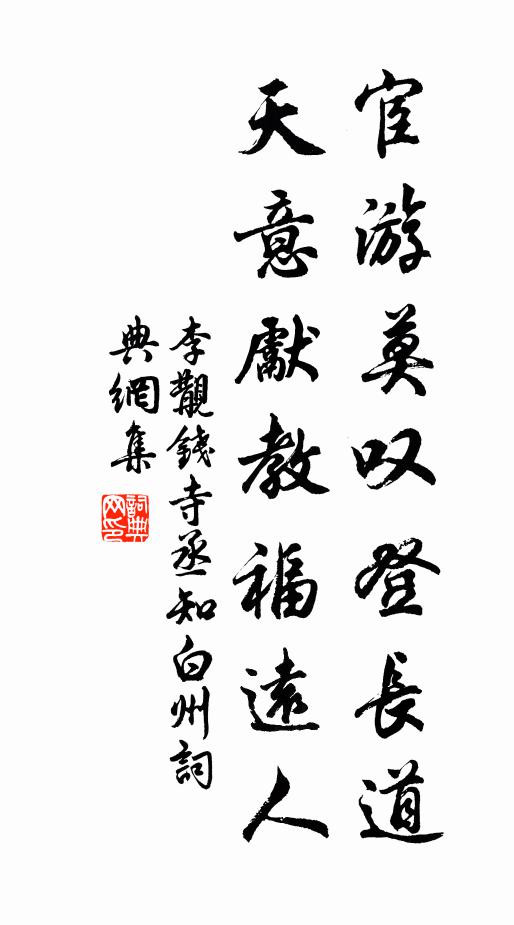 宦游莫叹登長道
天意獻教福遠人
李覯錢寺丞知白州詞
典網集
詞典网印